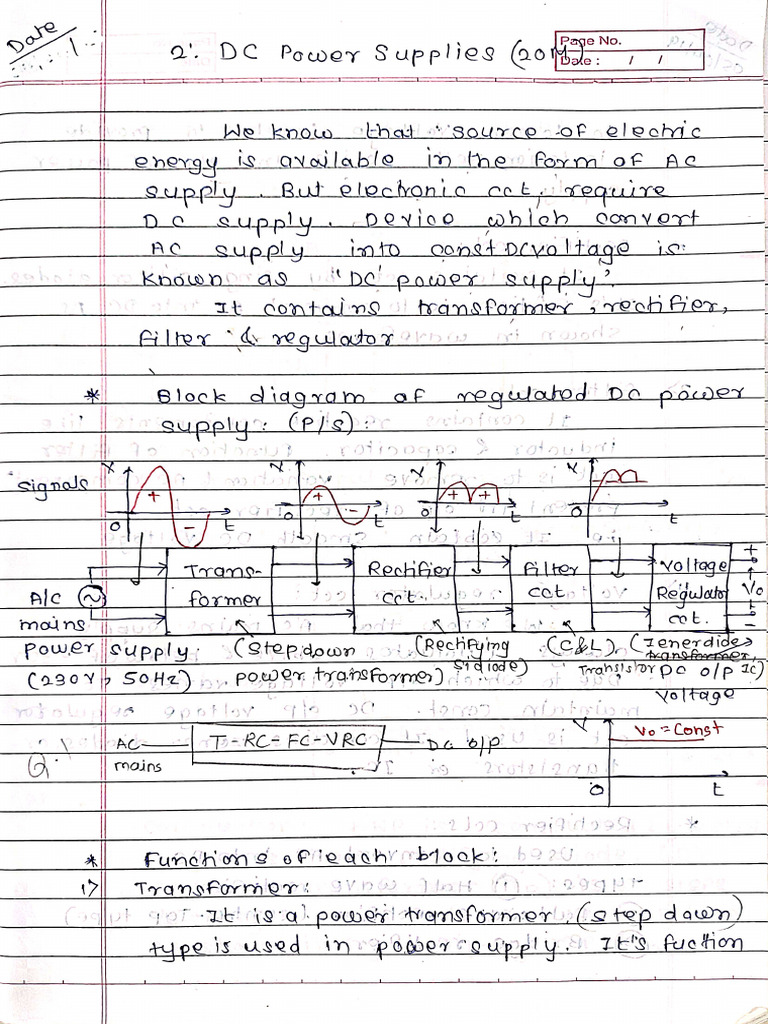 Date
1
2. DC Power Supplies (20M)
Page No.
Date : / /
We know that source of electric
energy is available in the form of AC
supply. But electronic cct, require
DC supply. Device which convert
AC supply into const DC voltage is
known as "DC power supply".
It contains transformer, rectifier,
filter & regulator
* Block diagram of regulated DC power
supply: (P/s)
signals
V + - 0 t
V + - 0 t
V + + 0 t
V 0 t
A/C
mains
power supply
(230V, 50Hz)
Trans-
former
(Step down
power transformer)
Rectifier
cct.
(Rectifying
diode)
Filter
cct.
(C&L)
Voltage
Regulator
cct.
(Zener diode,
transformer
Transistor IC)
+
Vo
-
DC O/P
voltage
Q.
AC
mains
T-RC-FC-VRC
DC O/P
V
Vo = Const
0 t
* Functions of each block:
1) Transformer:
It is a power transformer (step down)
type is used in power supply. It's fuction